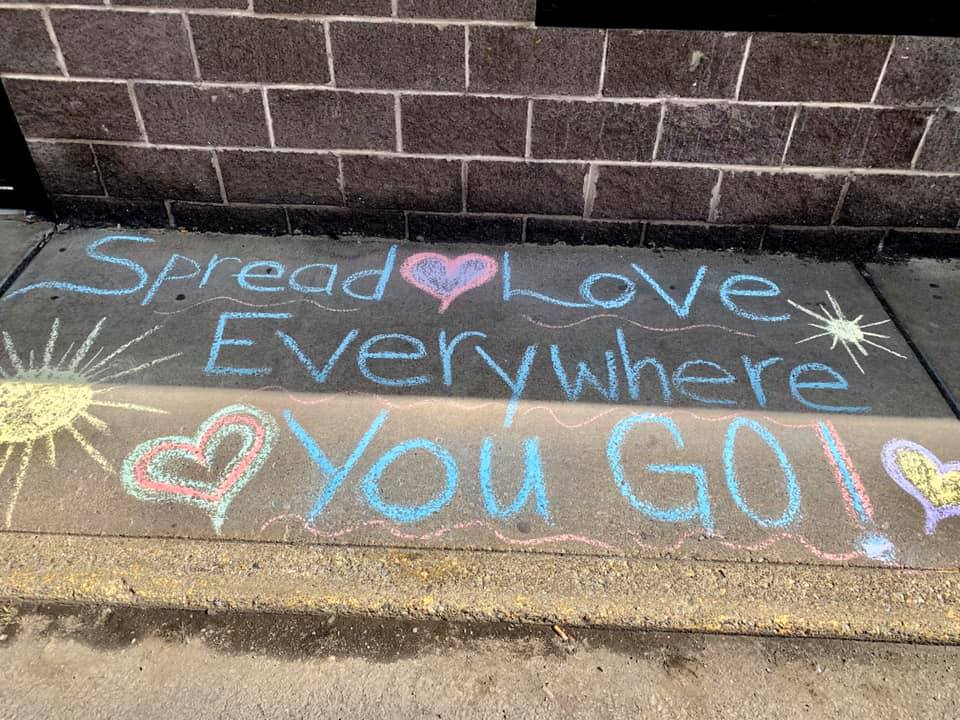 Spread Love
Everywhere
You GO!